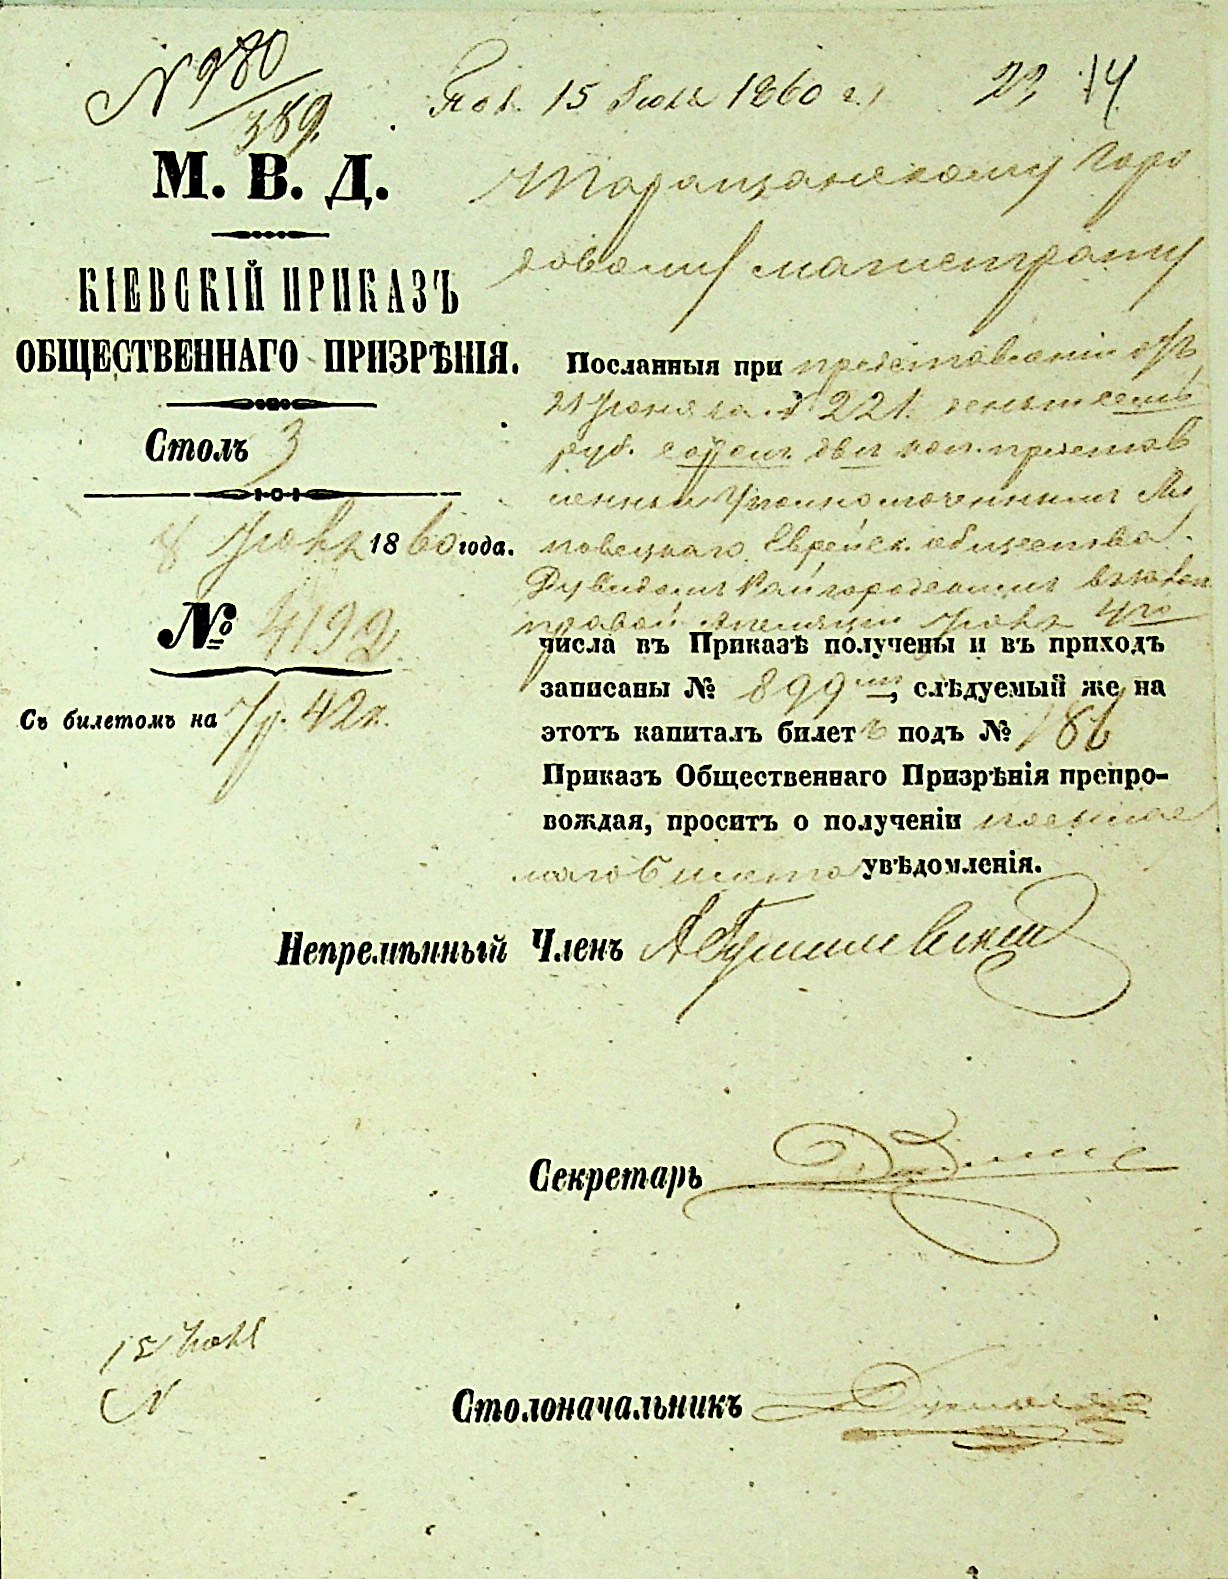 N 980
389.
Пол. 15 Июля 1860 г.
23 14
М. В. Д.
КІЕВСКІЙ ПРИКАЗЪ
ОБЩЕСТВЕННАГО ПРИЗРѢНІЯ.
Столъ 3
8 Июля 1860 года.
№ 4192
Съ билетомъ на 7 р. 42 к.
Таращанскому Горо
довому магистрату
Посланныя при представленіи отъ
21 Июня за № 221. деньги семь
руб. сорокъ две коп. представ
ленныя Уполномоченнымъ
Еврейск. общества
Дувидомъ
Апеляціи Июля 4го
числа въ Приказѣ получены и въ приходъ
записаны № 899, слѣдуемый же на
этотъ капиталъ билетъ подъ № 186
Приказъ Общественнаго Призрѣнія препро-
вождая, проситъ о полученіи
билета увѣдомленія.
Непремѣнный Членъ
Секретарь
15 Июля
N
Столоначальникъ